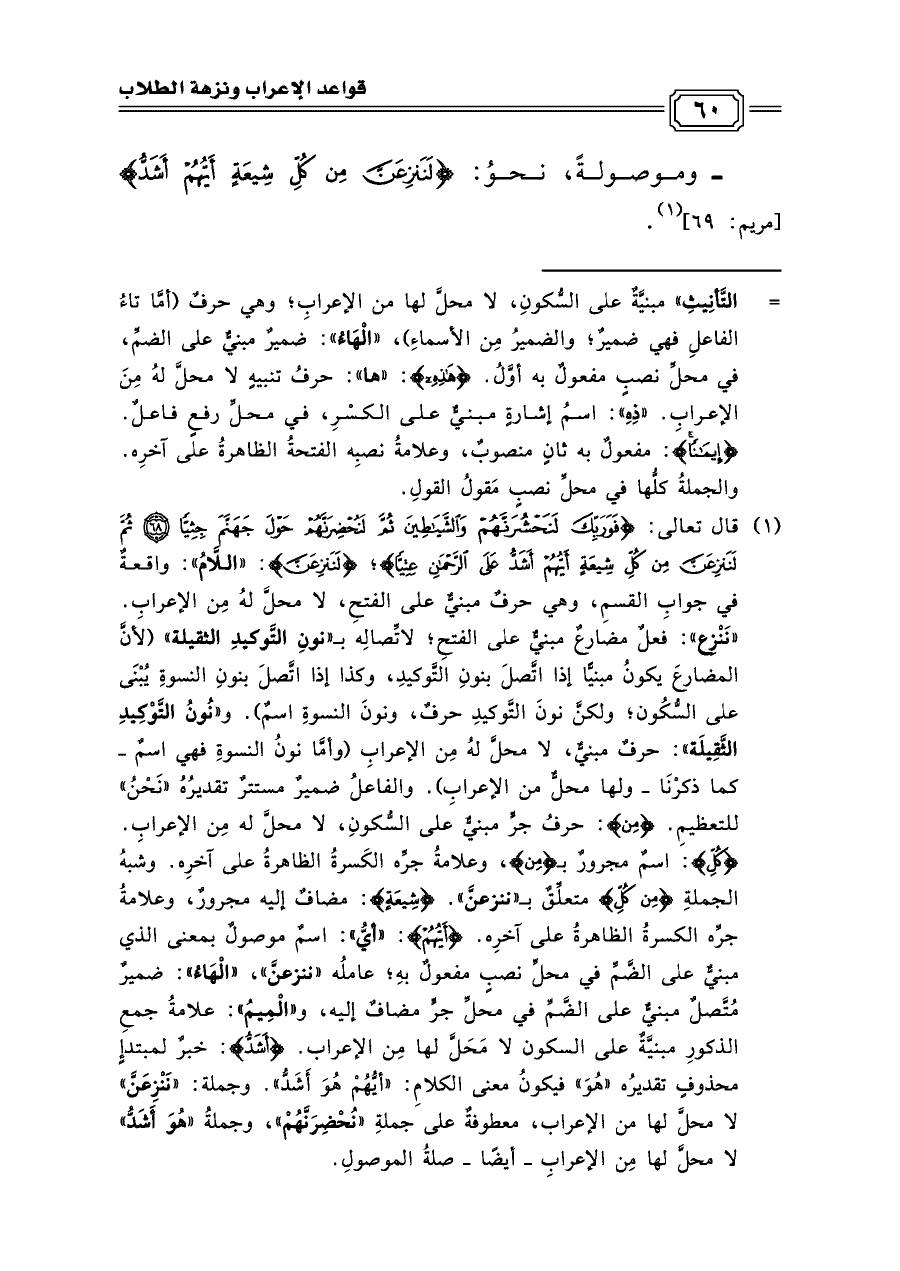 قواعد الإعراب ونزهة الطلاب
٦٠
ـ ومـوصـولـةً، نـحـوُ: ﴿لَنَنزِعَنَّ مِن كُلِّ شِيعَةٍ أَيُّهُمْ أَشَدُّ﴾
[مريم: ٦٩](١).
= التَّأنِيثِ» مبنيَّةٌ على السُّكونِ، لا محلَّ لها من الإعرابِ؛ وهي حرفٌ (أمَّا تاءُ
الفاعلِ فهي ضميرٌ؛ والضميرُ مِن الأسماءِ)، «الْهَاءُ»: ضميرٌ مبنيٌّ على الضمِّ،
في محلِّ نصبٍ مفعولٌ به أوَّلُ. ﴿هَٰذِهِۦ﴾: «ها»: حرفُ تنبيهٍ لا محلَّ لهُ مِنَ
الإعرابِ. «ذِهِ»: اسمُ إشارةٍ مبنيٌّ على الكسْرِ، في محلِّ رفعٍ فاعلٌ.
﴿إِيمَٰنًاۚ﴾: مفعولٌ به ثانٍ منصوبٌ، وعلامةُ نصبِه الفتحةُ الظاهرةُ علَى آخرِه.
والجملةُ كلُّها في محلِّ نصبٍ مَقولُ القولِ.
(١) قال تعالى: ﴿فَوَرَبِّكَ لَنَحْشُرَنَّهُمْ وَٱلشَّيَٰطِينَ ثُمَّ لَنُحْضِرَنَّهُمْ حَوْلَ جَهَنَّمَ جِثِيًّا ۝٦٨ ثُمَّ
لَنَنزِعَنَّ مِن كُلِّ شِيعَةٍ أَيُّهُمْ أَشَدُّ عَلَى ٱلرَّحْمَٰنِ عِتِيًّا﴾؛ ﴿لَنَنزِعَنَّ﴾: «اللَّامُ»: واقعةٌ
في جوابِ القسمِ، وهي حرفٌ مبنيٌّ على الفتحِ، لا محلَّ لهُ مِن الإعرابِ.
«نَنْزِع»: فعلٌ مضارعٌ مبنيٌّ على الفتحِ؛ لاتِّصالِه بـ«نونِ التَّوكيدِ الثقيلة» (لأنَّ
المضارعَ يكونُ مبنيًّا إذا اتَّصلَ بنونِ التَّوكيدِ، وكذا إذا اتَّصلَ بنونِ النسوةِ يُبْنَى
على السُّكُون؛ ولكنَّ نونَ التَّوكيدِ حرفٌ، ونونَ النسوةِ اسمٌ). و«نُونُ التَّوْكِيدِ
الثَّقِيلَة»: حرفٌ مبنيٌّ، لا محلَّ لهُ مِن الإعرابِ (وأمَّا نونُ النسوةِ فهي اسمٌ ـ
كما ذكرْنَا ـ ولها محلٌّ من الإعرابِ). والفاعلُ ضميرٌ مستترٌ تقديرُهُ «نَحْنُ»
للتعظيمِ. ﴿مِن﴾: حرفُ جرٍّ مبنيٌّ على السُّكونِ، لا محلَّ له مِن الإعرابِ.
﴿كُلِّ﴾: اسمٌ مجرورٌ بـ﴿مِن﴾، وعلامةُ جرِّه الكَسرةُ الظاهرةُ على آخرِه. وشبهُ
الجملةِ ﴿مِن كُلِّ﴾ متعلِّقٌ بـ«ننزعنَّ». ﴿شِيعَةٍ﴾: مضافٌ إليه مجرورٌ، وعلامةُ
جرِّه الكسرةُ الظاهرةُ على آخرِه. ﴿أَيُّهُمْ﴾: «أيُّ»: اسمٌ موصولٌ بمعنى الذي
مبنيٌّ على الضَّمِّ في محلِّ نصبٍ مفعولٌ بهِ؛ عاملُه «ننزعنَّ»، «الْهَاءُ»: ضميرٌ
مُتَّصلٌ مبنيٌّ على الضَّمِّ في محلِّ جرٍّ مضافٌ إليه، و«الْمِيمُ»: علامةُ جمعِ
الذكورِ مبنيَّةٌ على السكون لا مَحَلَّ لها مِن الإعراب. ﴿أَشَدُّ﴾: خبرٌ لمبتدإٍ
محذوفٍ تقديرُه «هُوَ» فيكونُ معنى الكلامِ: «أيُّهُمْ هُوَ أَشَدُّ». وجملة: «نَنْزِعَنَّ»
لا محلَّ لها من الإعراب، معطوفةٌ على جملةِ «نُحْضِرَنَّهُمْ»، وجملةُ «هُوَ أَشَدُّ»
لا محلَّ لها مِن الإعرابِ ـ أيضًا ـ صلةُ الموصولِ.